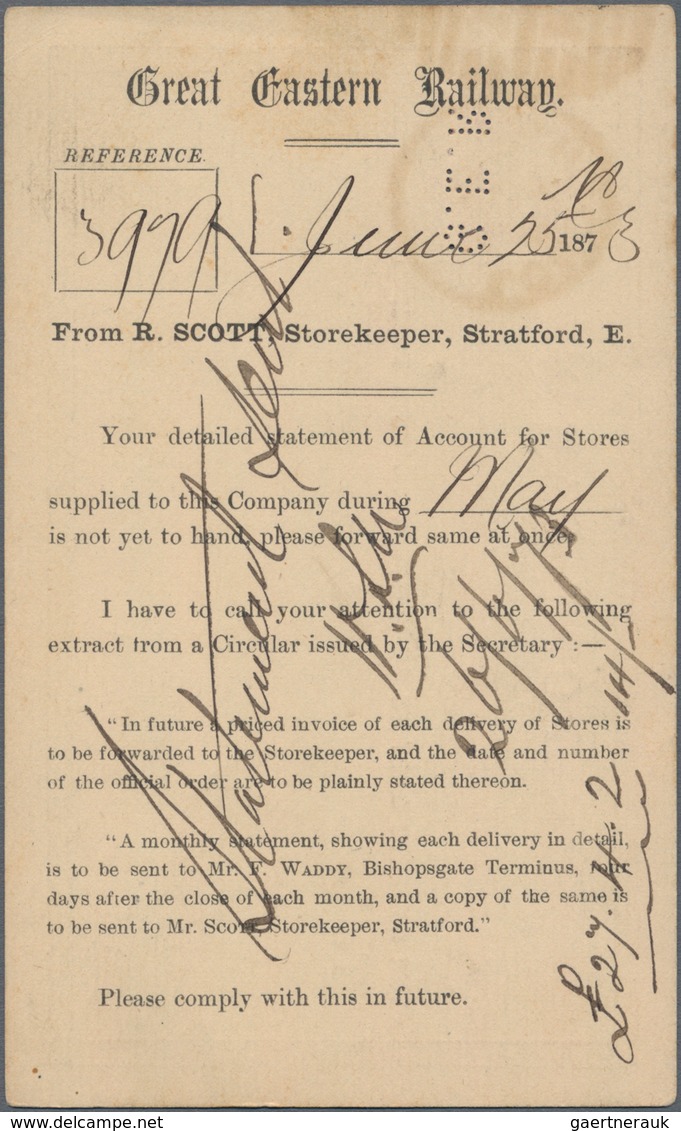 Great Eastern Railway.
G.E.R
REFERENCE.
3979
June 25 1873
From R. SCOTT, Storekeeper, Stratford, E.
Your detailed statement of Account for Stores
supplied to this Company during May
is not yet to hand, please forward same at once.
I have to call your attention to the following
extract from a Circular issued by the Secretary :—
"In future a priced invoice of each delivery of Stores is
to be forwarded to the Storekeeper, and the date and number
of the official order are to be plainly stated thereon.
"A monthly statement, showing each delivery in detail,
is to be sent to Mr. F. WADDY, Bishopsgate Terminus, four
days after the close of each month, and a copy of the same is
to be sent to Mr. SCOTT, Storekeeper, Stratford."
Please comply with this in future.
Statement Sent
26/6/73
£27.4.2
www.delcampe.net
gaertnerauk